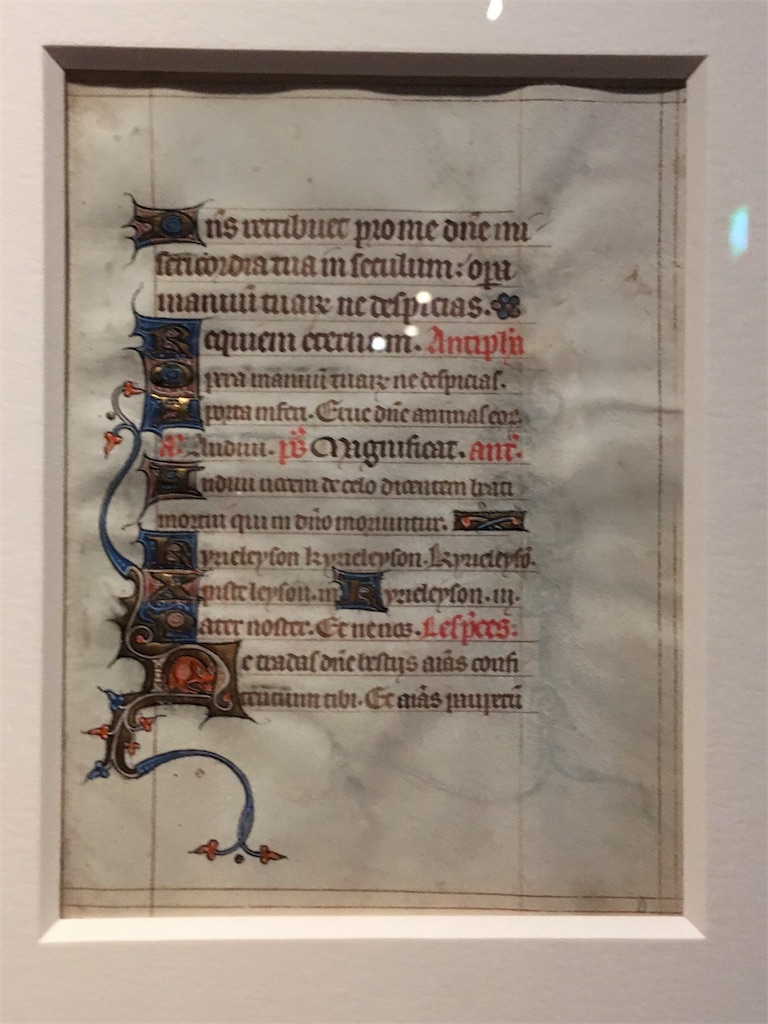 Dns retribuet pro me dne mi
sericordia tua in seculum: opa
manuū tuarꝝ ne despicias.
Requiem eternam. Antipha
Opera manuū tuarꝝ ne despicias.
A porta inferi. Erue dne animas eoꝝ.
a. Audiui. ps Magnificat. ant.
Audiui uocem de celo dicentem beati
mortui qui in dno moriuntur.
Kyrieleyson kyrieleyson. Kyrieleysō.
Xpisteleyson. iij Kyrieleyson. iij.
Pater noster. Et ne nos. Les preces:
Ne tradas dne bestijs aias confi
tentium tibi. Et aias pauperū